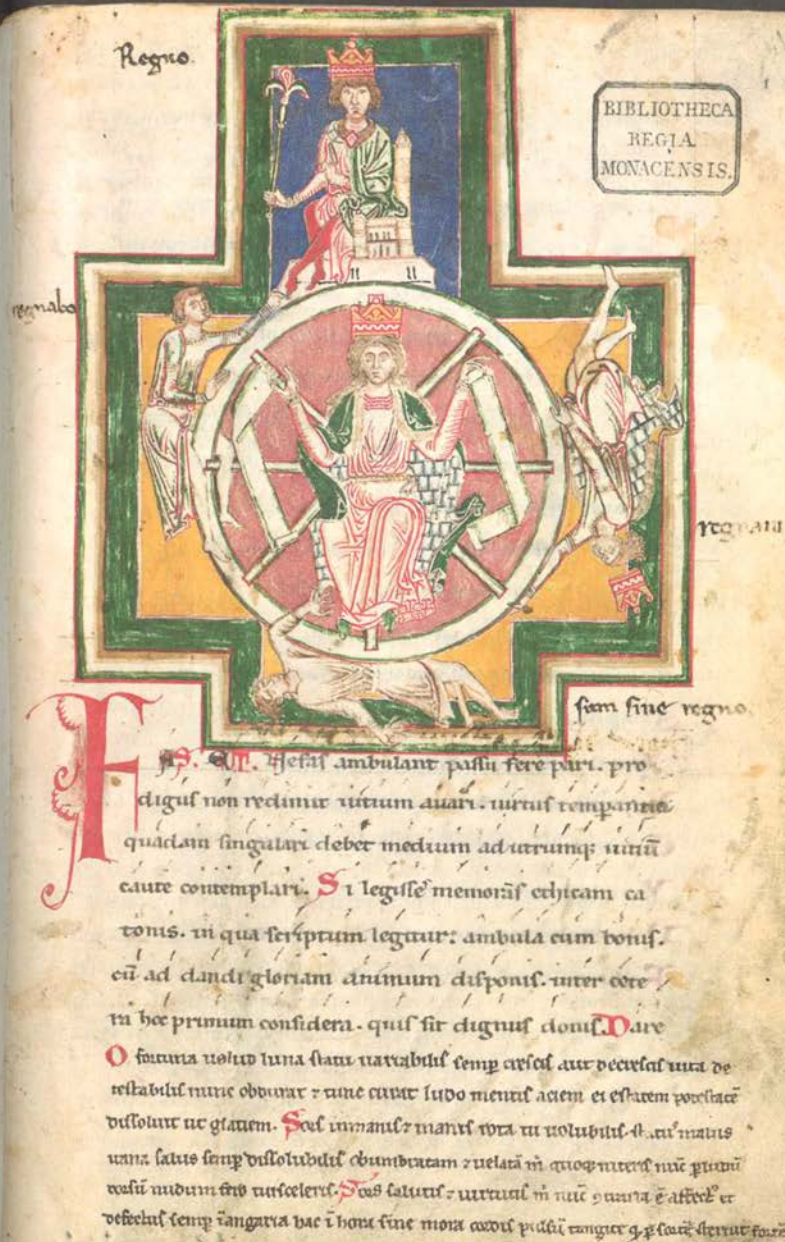 Regno.
BIBLIOTHECA
REGIA
MONACENSIS.
regnabo
regnaui
sum sine regno.
FAS. ET. Nefas ambulant passu fere pari. pro
digus non redimit uitium auari. uirtus temperantia
quadam singulari debet medium ad utrumq; uitiũ
caute contemplari. Si legisse memoras ethicam ca
tonis. in qua scriptum legitur: ambula cum bonis.
cũ ad dandi gloriam animum disponis. inter cete
ra hoc primum considera. quis sit dignus donis. Dare
O fortuna uelud luna statu uariabilis semp crescis aut decrescis uita de
testabilis nunc obdurat ⁊ tunc curat ludo mentis aciem egestatem potestatẽ
dissoluit ut glaciem. Sors inmanis ⁊ inanis rota tu uolubilis status malus
uana salus semp dissolubilis obumbratam ⁊ uelatã m̃ quoq; niteris nũc p ludũ
dorsũ nudum fero tui sceleris. Sors salutis ⁊ uirtutis m̃ nũc ꝯtraria ẽ affectꝰ et
defectus semp ĩ angaria hac ĩ hora sine mora cordis pulsũ tangite q̃ p sortẽ sternit fortẽ